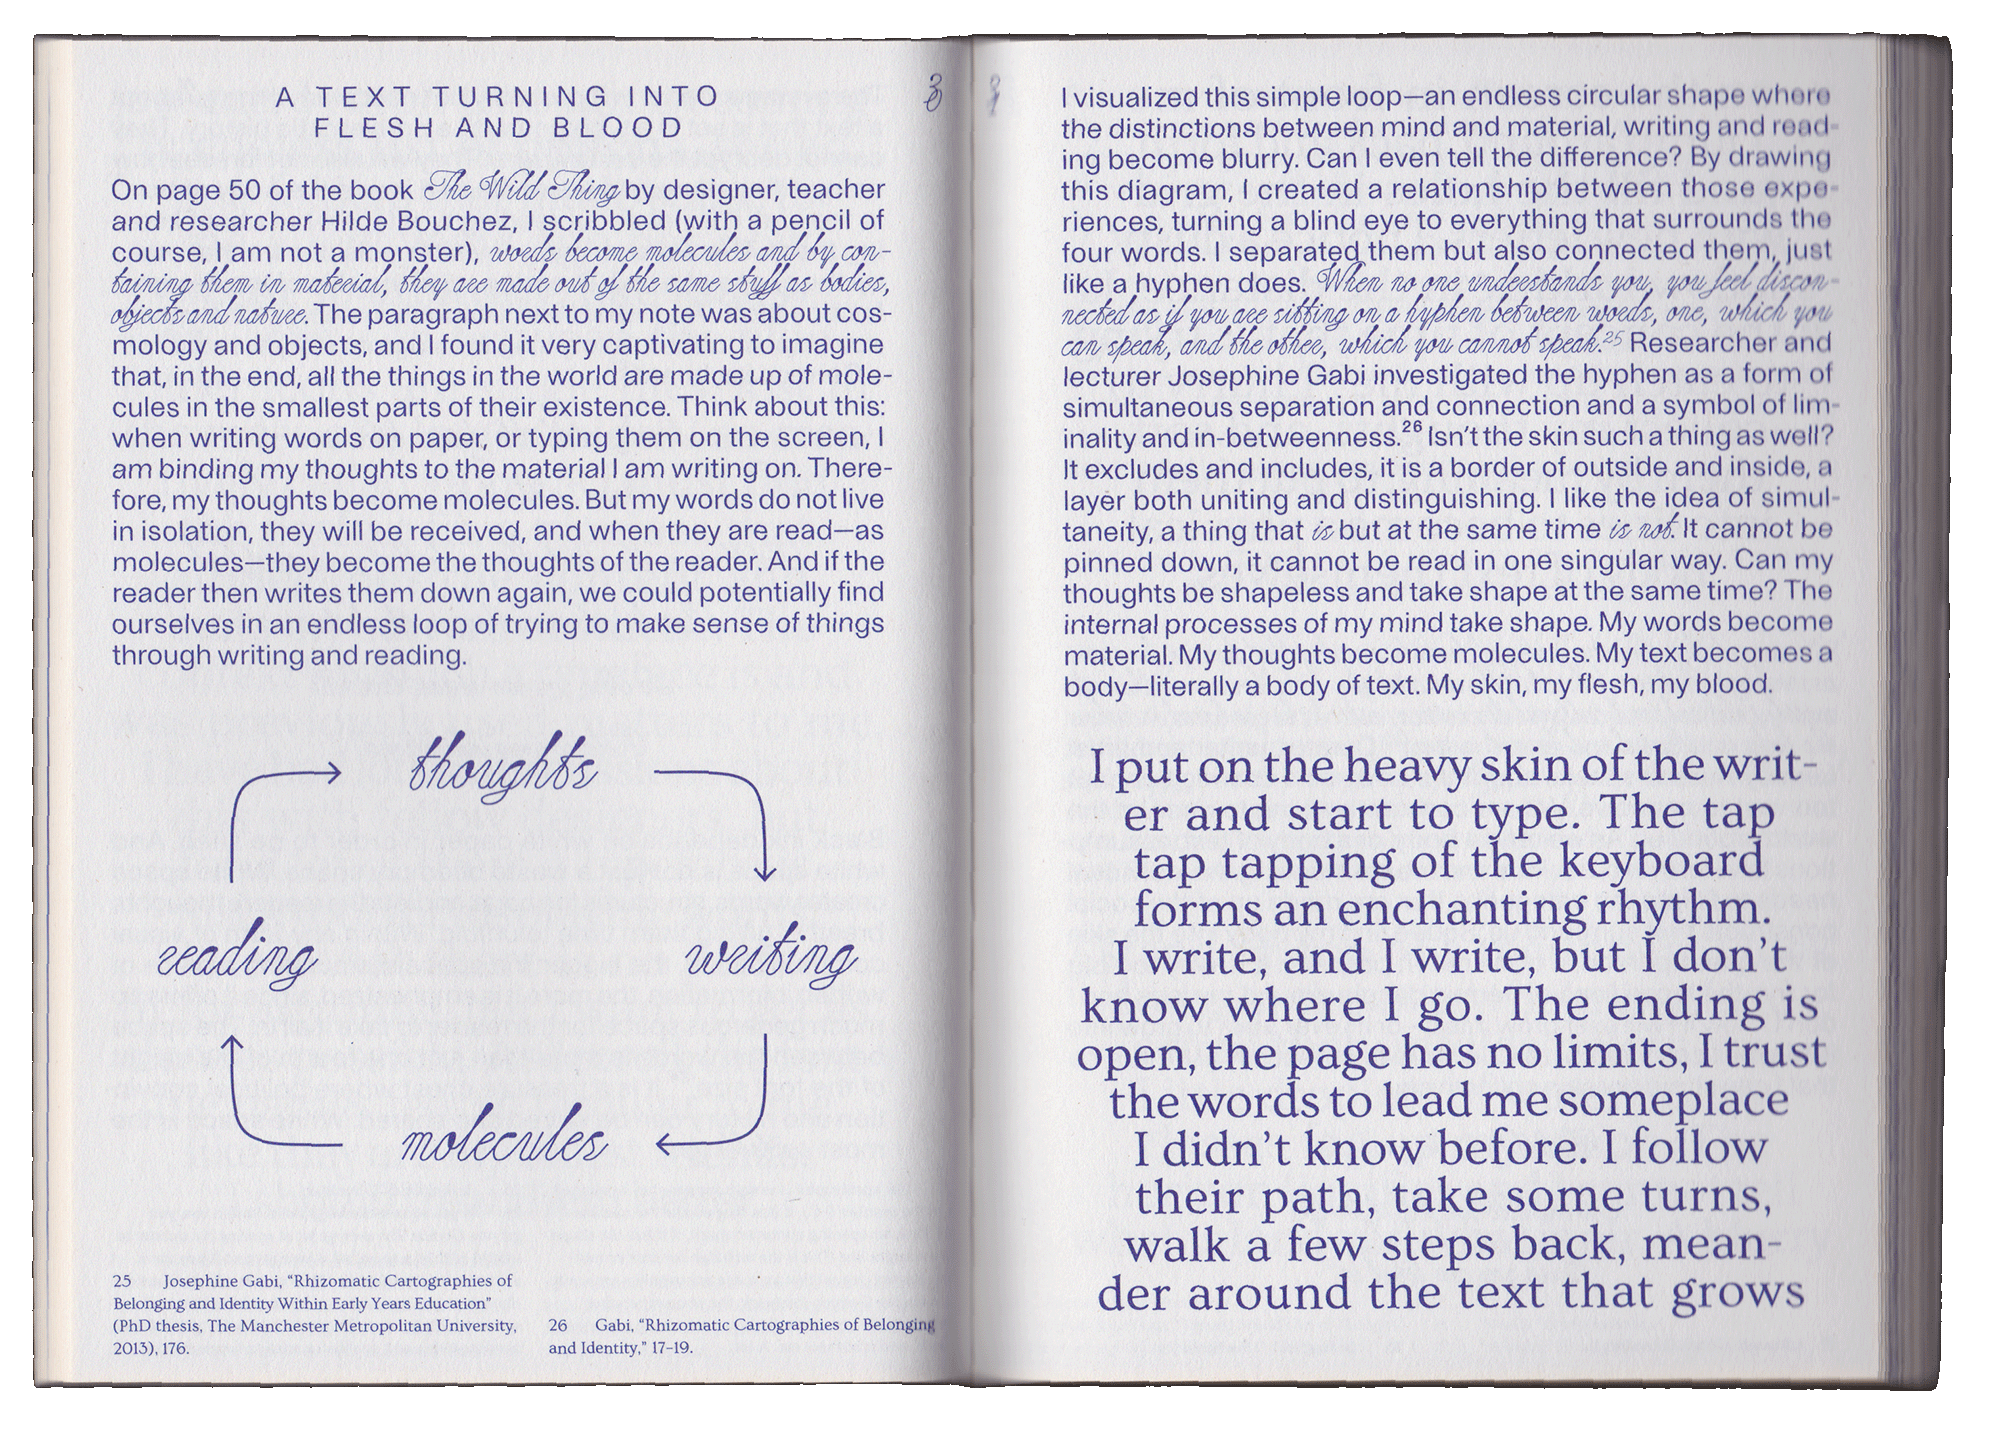 A TEXT TURNING INTO
FLESH AND BLOOD
On page 50 of the book The Wild Thing by designer, teacher
and researcher Hilde Bouchez, I scribbled (with a pencil of
course, I am not a monster), words become molecules and by con-
taining them in material, they are made out of the same stuff as bodies,
objects and nature. The paragraph next to my note was about cos-
mology and objects, and I found it very captivating to imagine
that, in the end, all the things in the world are made up of mole-
cules in the smallest parts of their existence. Think about this:
when writing words on paper, or typing them on the screen, I
am binding my thoughts to the material I am writing on. There-
fore, my thoughts become molecules. But my words do not live
in isolation, they will be received, and when they are read—as
molecules—they become the thoughts of the reader. And if the
reader then writes them down again, we could potentially find
ourselves in an endless loop of trying to make sense of things
through writing and reading.
thoughts
reading
writing
molecules
25 Josephine Gabi, “Rhizomatic Cartographies of
Belonging and Identity Within Early Years Education”
(PhD thesis, The Manchester Metropolitan University,
2013), 176.
26 Gabi, “Rhizomatic Cartographies of Belonging
and Identity,” 17–19.
I visualized this simple loop—an endless circular shape where
the distinctions between mind and material, writing and read-
ing become blurry. Can I even tell the difference? By drawing
this diagram, I created a relationship between those expe-
riences, turning a blind eye to everything that surrounds the
four words. I separated them but also connected them, just
like a hyphen does. When no one understands you, you feel discon-
nected as if you are sitting on a hyphen between words, one, which you
can speak, and the other, which you cannot speak.25 Researcher and
lecturer Josephine Gabi investigated the hyphen as a form of
simultaneous separation and connection and a symbol of lim-
inality and in-betweenness.26 Isn’t the skin such a thing as well?
It excludes and includes, it is a border of outside and inside, a
layer both uniting and distinguishing. I like the idea of simul-
taneity, a thing that is but at the same time is not. It cannot be
pinned down, it cannot be read in one singular way. Can my
thoughts be shapeless and take shape at the same time? The
internal processes of my mind take shape. My words become
material. My thoughts become molecules. My text becomes a
body—literally a body of text. My skin, my flesh, my blood.
I put on the heavy skin of the writ-
er and start to type. The tap
tap tapping of the keyboard
forms an enchanting rhythm.
I write, and I write, but I don’t
know where I go. The ending is
open, the page has no limits, I trust
the words to lead me someplace
I didn’t know before. I follow
their path, take some turns,
walk a few steps back, mean-
der around the text that grows